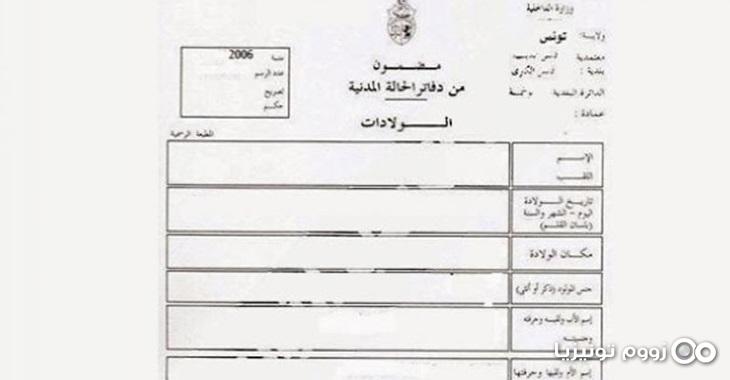 وزارة الداخلية
ولاية: تونس
معتمدية
بلدية :
الدائرة البلدية
عمادة :
مضمون
من دفاتر الحالة المدنية
الولادات
سنة 2006
عدد الرسم
تصريح
حكم
المطبعة الرسمية
الإسم
اللقب
تاريخ الولادة
اليوم - الشهر والسنة
(بلسان القلم)
مكان الولادة
جنس المولود (ذكر أو أنثى)
إسم الأب ولقبه وحرفته
وجنسيته
إسم الأم ولقبها وحرفتها
زووم تونيزيا